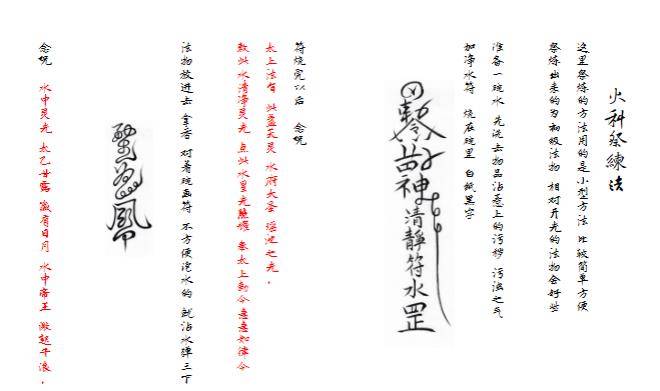 火科祭練法
这里祭炼的方法用的是小型方法 比较简单方便
祭炼出来的为初级法物 相对开光的法物会好些
准备一碗水 先洗去物品沾惹上的污秽 污浊之气
加净水符 烧在碗里 白纸黑字
神清靜符水罡
符烧完以后 念咒
太上法旨 此盏天灵 水府大圣 瑶池之光.
敕此水清净灵光 点此水皇光 奉太上勅令 急急如律令
法物放进去 拿香 对着碗画符 不方便泡水的 就沾水弹三下
念咒 水中灵光 太乙甘露 水中帝王 激起千浪.